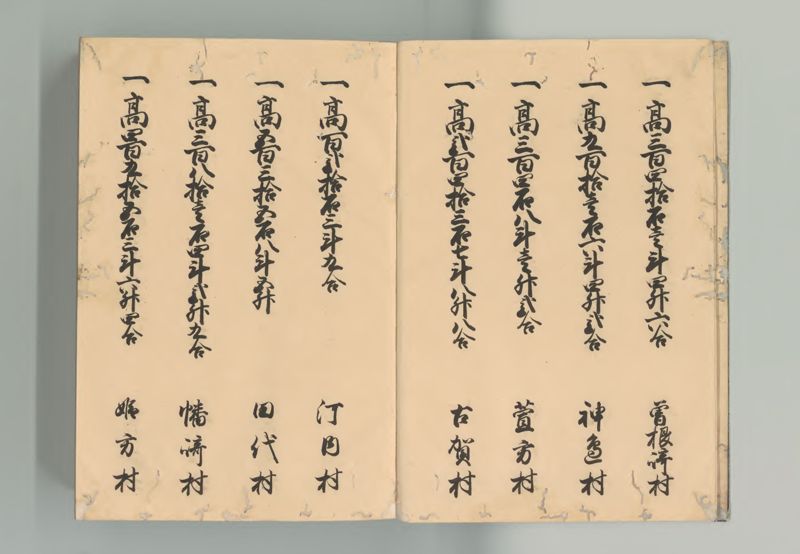 一高三百四拾石壱斗四升六合 曽根崎村
一高九百拾壱石六斗四升弐合 神邉村
一高三百四石八斗壱升弐合 萱方村
一高弐百四拾三石七斗八升八合 古賀村
一高百弐拾石三斗九合 村
一高五百三拾五石八斗五升 田代村
一高三百八拾壱石四斗弐升九合 幡崎村
一高四百九拾五石三斗六升四合 姫方村